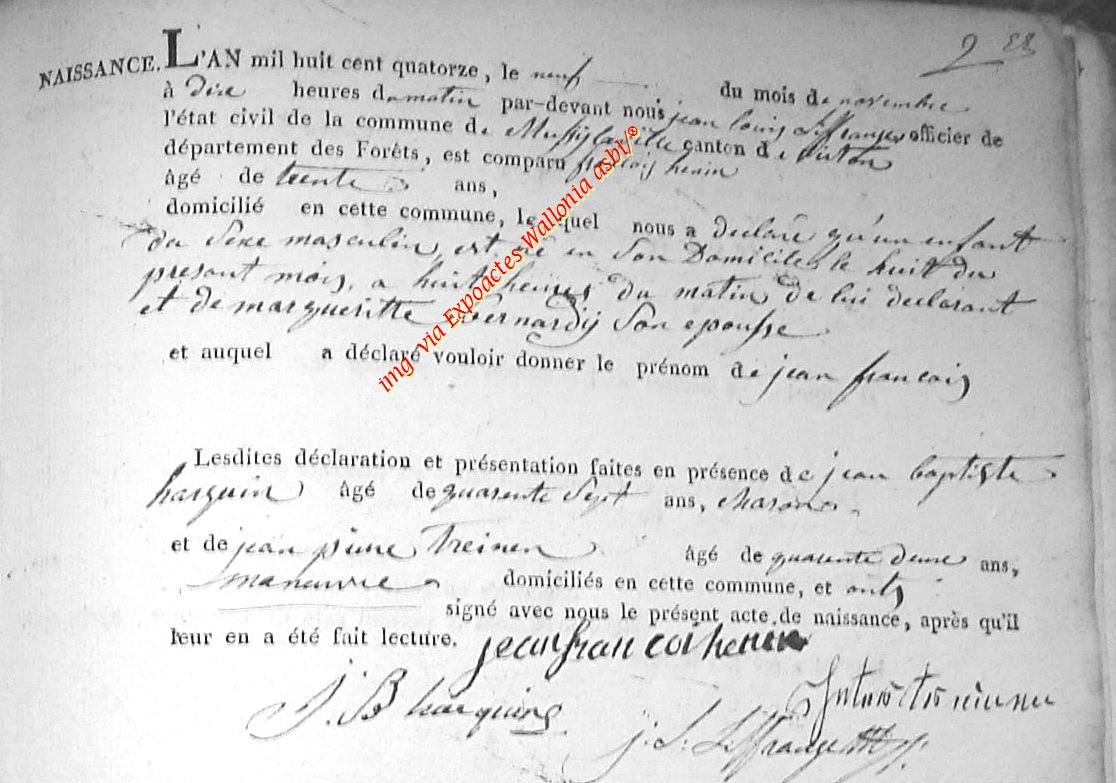 2 28
NAISSANCE. L'AN mil huit cent quatorze, le neuf du mois de novembre
à dixe heures du matin par-devant nous jean louis officier de
l'état civil de la commune de Mussylaville canton de Virton
département des Forêts, est comparu françois henin
âgé de trente ans,
domicilié en cette commune, lequel nous a declaré qu'un enfant
du sexe masculin est né en son Domicile le huit du
presant mois, a huit heures du matin de lui declarant
et de margueritte bernardy son epousse
et auquel a déclaré vouloir donner le prénom de jean francois
Lesdites déclaration et présentation faites en présence de jean baptiste
harquin âgé de quarente sept ans, charon
et de jean piere Treinen âgé de quarente deuxe ans,
maneuvre domiciliés en cette commune, et onts
signé avec nous le présent acte de naissance, après qu'il
leur en a été fait lecture. jean francoi henin
J. B harquin
j. L.
img- via Expoactes-Wallonia asbl/®